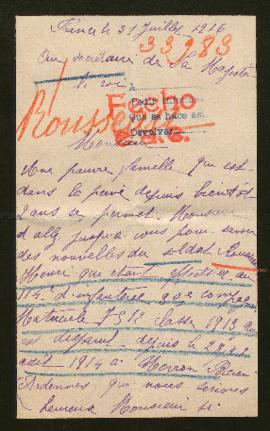 France le 31 Juillet 1916
33983
Au secrétaire de Sa Majesté
le roi
A
Pedir
que se hace
Devolver
Fecho
Rousseau
Monsieur
Une pauvre famille qui est
dans la peine depuis bientôt
2 ans se permet Monsieur
d'aller jusqu'à vous pour savoir
des nouvelles du soldat Rousseau
Henri qui était affecté au
114 d'infanterie 90e compagnie
Matricule 7312 classe 1913
est disparu depuis le
août 1914 à
Ardennes, que nous serions
heureux Monsieur si